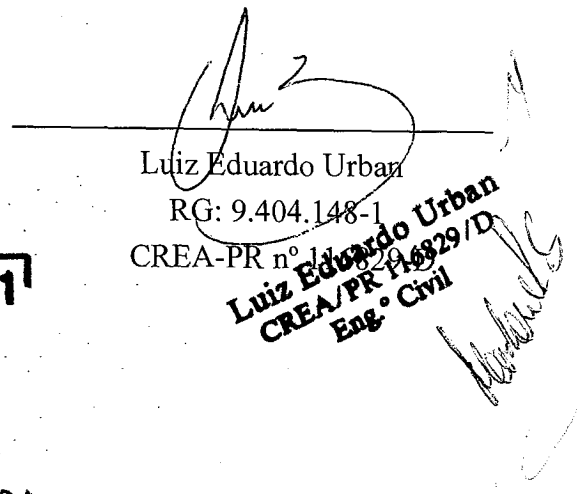 Luiz Eduardo Urban
RG: 9.404.148-1
CREA-PR nº
Luiz Eduardo Urban
CREA/PR 116829/D
Eng.º Civil